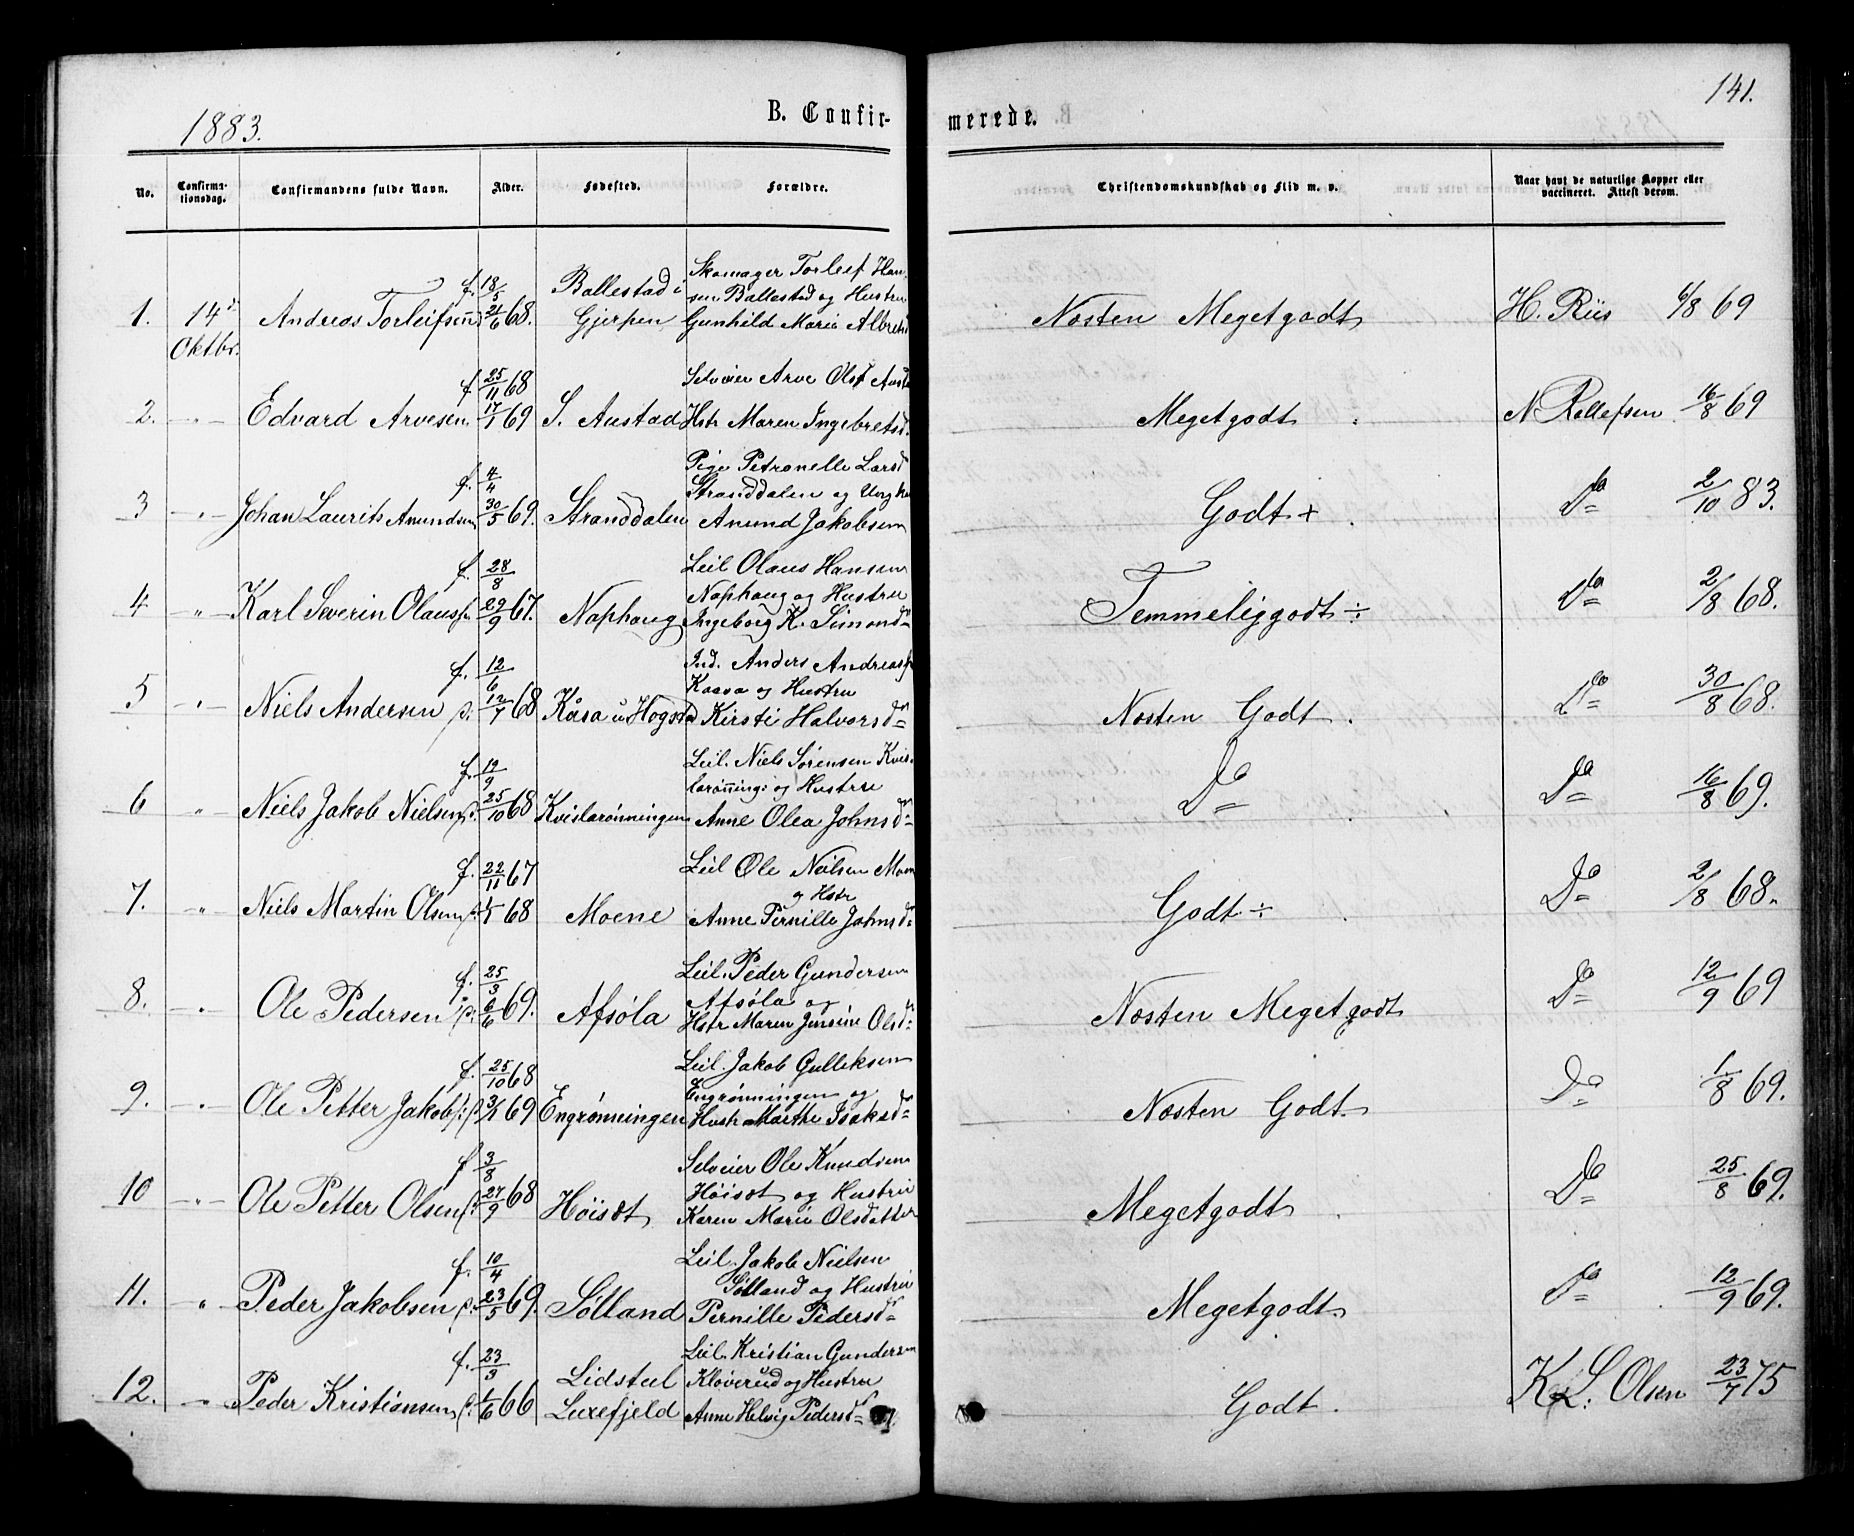 141.
1883.
B. Confirmerede.
No. Confirmationsdag. Confirmandens fulde Navn. Alder. Fødested. Forældre. Christendomskundskab og Flid m. v. Naar havt de naturlige Kopper eller vaccineret. Attest derom.
Skomager Torleif Han-
f. 18/5 Ballestad i sen Ballestad og Hustru
1. 14de Andreas Torleifsen 21/6 68. Gjerpen Gunhild Marie Albretsd Næsten Megetgodt H. Riis 6/8 69
Oktbr.
f 25/11 68 Selveier Arve Ols
2. -"- Edvard Arvesen 17/1 69 S. Austad Hstr Maren Ingebretsd. Megetgodt N Rollefsen 16/8 69
Pige Petronelle Larsd
f. 4/4 Stranddalen og Ungk
3 -"- Johan Laurits Amundsen 30/5 69. Stranddalen Amund Jakobsen Godt + Do 2/10 83.
f. 28/8 Leil Olaus Hansen
Naphaug og Hustru
4 -"- Karl Severin Olauss 29/9 67. Naphaug Ingeborg K. Simonsd Temmeliggodt ÷ Do 2/8 68.
f. 12/6 Ind. Anders Andreas
Kaasa og Hustru
5 -"- Niels Andersen d. 12/7 68 Kåsa u Hogst Kirsti Halvorsd Næsten Godt. Do 30/8 68.
f. 19/9 Leil. Niels Sørensen Kvis-
larønning: og Hustru
6 " Niels Jakob Nielsen d. 25/10 68 Kvislarønningen Anne Olea Johnsd Do Do 16/8 69.
f. 22/11 67 Leil Ole Neilsen Moen
og Hstr
7. -"- Niels Martin Olsen 68 Moene Anne Pernille Johnsd Godt ÷ Do 2/8 68.
f. 25/3 Leil. Peder Gundersen
Afsøla og
8. -"- Ole Pedersen d. 6/6 69. Afsøla Hstr Maren Jensine Olsd Næsten Megetgodt Do 12/9 69
f. 25/10 68 Leil. Jakob Gulleksen
Engrønningen og
9. -"- Ole Petter Jakobs: d. 3/1 69 Engrønningen Hustr Marthe Isaksd Næsten Godt Do 1/8 69.
f 3/8 Selveier Ole Knudsen
Høisæt og Hustru
10 -"- Ole Petter Olsen d. 27/9 68 Höisæt Karen Marie Olsdatter Megetgodt Do 25/8 69.
f. 10/4 Leil. Jakob Nielsen
Sølland og Hustru
11. " Peder Jakobsen d. 23/5 69. Sølland Pernille Pedersd Megetgodt Do 12/9 69.
f. 23/3 Lidsteil Leil. Kristian Gundersen
Kløverud og Hustru
12. -"- Peder Kristiansen d. 1/6 66 Luxefjeld Anne Helvig Pedersd Godt. K. L. Olsen 23/7 75